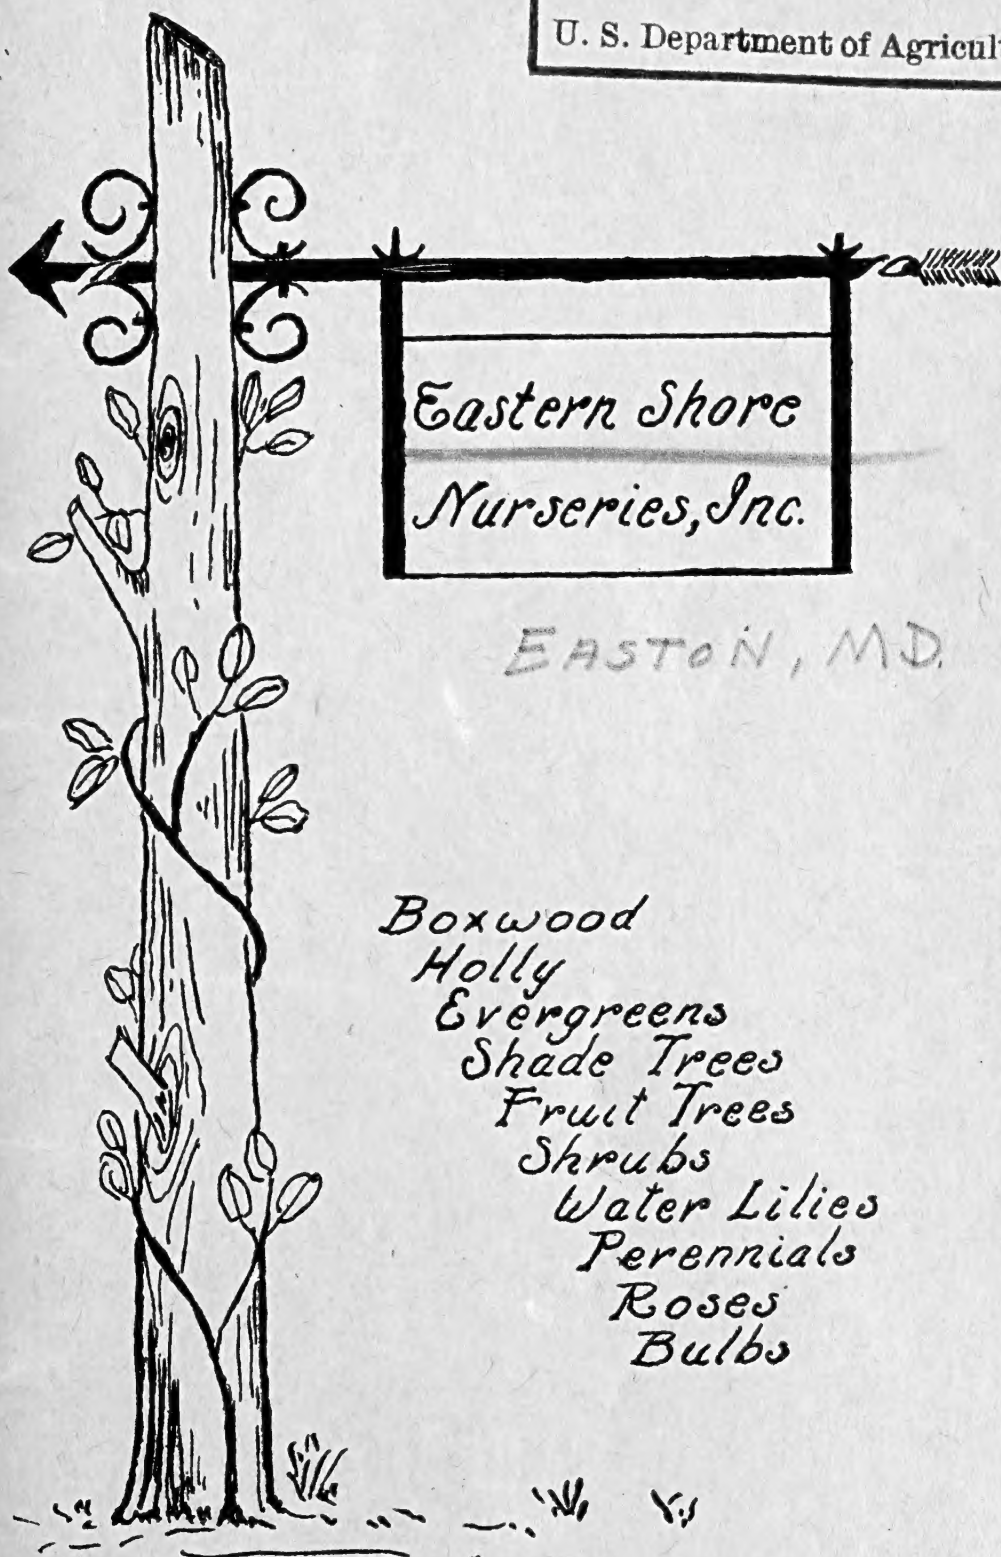 U. S. Department of
Eastern Shore
Nurseries, Inc.
EASTON, MD.
Boxwood
Holly
Evergreens
Shade Trees
Fruit Trees
Shrubs
Water Lilies
Perennials
Roses
Bulbs